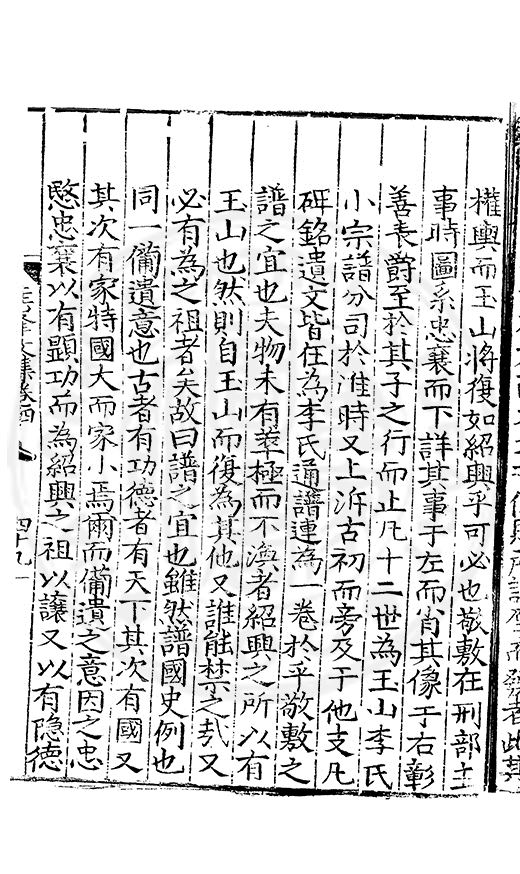 權輿而玉山將復如紹興乎可必也敬敷在刑部主
事時圖系忠襄而下詳其事于左而肖其像于右彰
善表爵至於其子之行而止凡十二世為玉山李氏
小宗譜分司於淮時又上泝古初而旁及于他支凡
碑銘遺文皆在為李氏通譜連為一卷於乎敬敷之
譜之宜也夫物未有萃極而不渙者紹興之所以有
玉山也然則自玉山而復為其他又誰能禁之㢤又
必有為之祖者矣故曰譜之宜也雖然譜國史例也
同一備遺意也古者有功德者有天下其次有國又
其次有家特國大而家小焉爾而備遺之意因之忠
愍忠襄以有顯功而為紹興之祖以讓又以有隐德
文集卷四
四十九